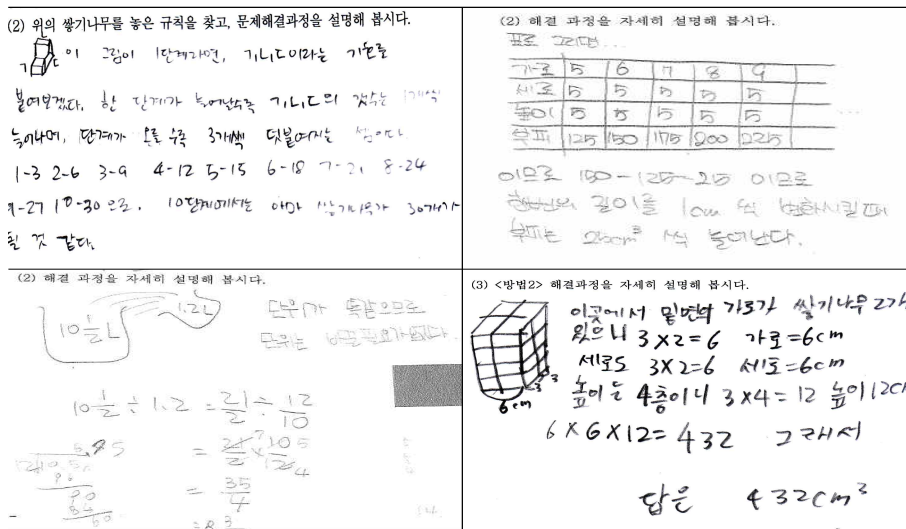 (2) 위의 쌓기나무를 놓은 규칙을 찾고, 문제해결과정을 설명해 봅시다.
이 그림이 1단계라면, ㄱㄴㄷ이라는 기호로
붙여보겠다. 한 단계가 늘어날수록 ㄱㄴㄷ의 갯수는 1개씩
늘어나며, 단계가 오를수록 3개씩 덧붙여지는 셈이다
1-3 2-6 3-9 4-12 5-15 6-18 7-21 8-24
9-27 10-30 으로. 10단계에서는 아마 쌓기나무가 30개가
될 것 같다.
(2) 해결 과정을 자세히 설명해 봅시다.
표로 그리면...
가로 5 6 7 8 9
세로 5 5 5 5 5
높이 5 5 5 5 5 ...
부피 125 150 175 200 225
이므로 150-125=25 이므로
길이를 1cm 씩 변화시킬때
부피는 25cm³ 씩 늘어난다.
(2) 해결 과정을 자세히 설명해 봅시다.
10½L 1.2L
단위가 똑같으므로
단위는 바꿀필요가없다.
10½ ÷ 1.2 = 21/2 ÷ 12/10
= 35/4
(3) <방법2> 해결과정을 자세히 설명해 봅시다.
이곳에서 밑면의 가로가 쌓기나무 2개
있으니 3×2=6 가로=6cm
세로도 3×2=6 세로=6cm
높이는 4층이니 3×4=12 높이12cm
6cm 3 3
6×6×12=432 그래서
답은 432cm³